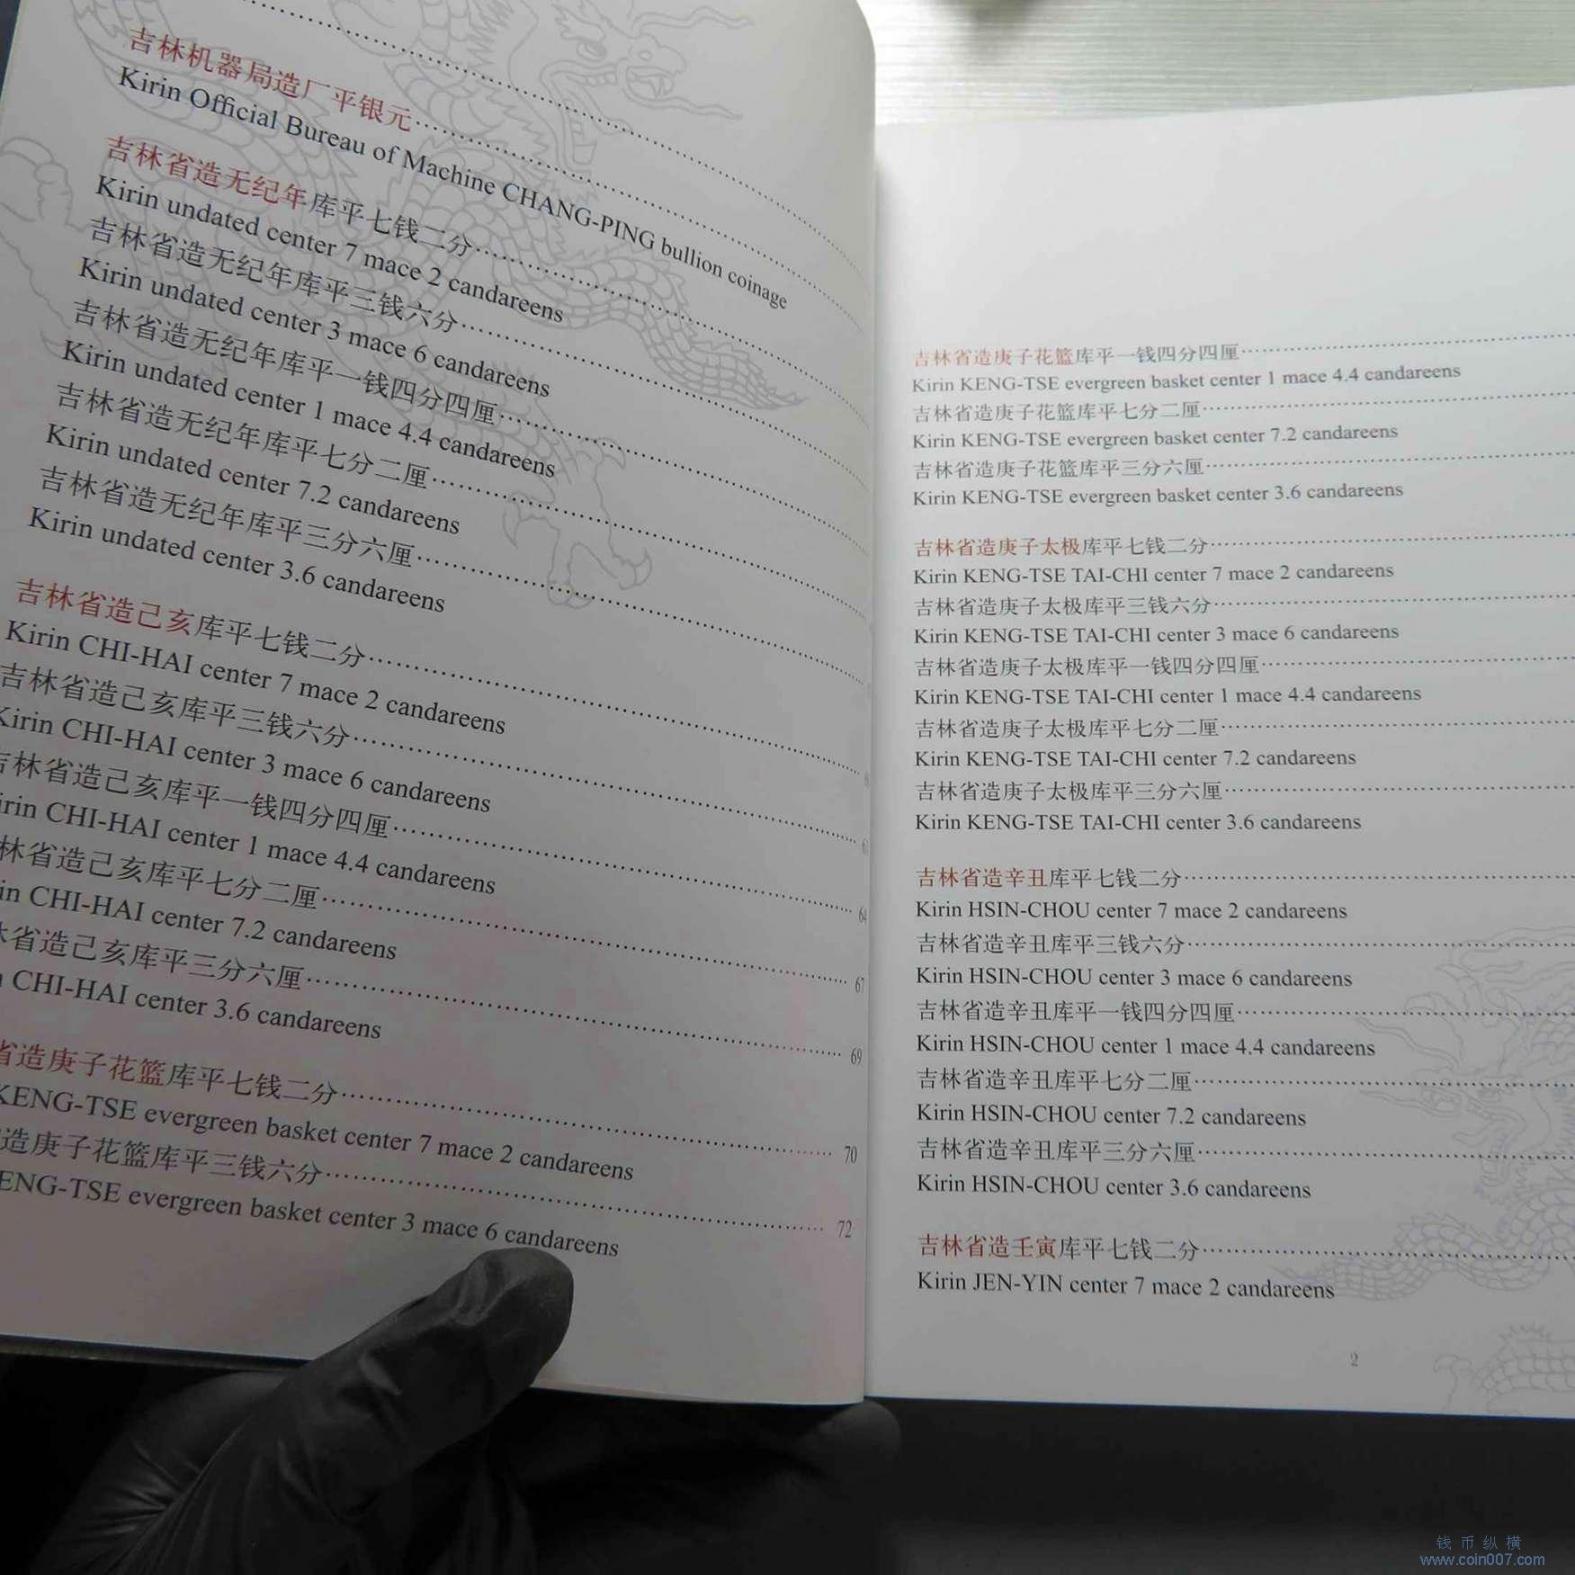 吉林机器局造厂平银元
Kirin Official Bureau of Machine CHANG-PING bullion coinage
吉林省造无纪年库平七钱二分
Kirin undated center 7 mace 2 candareens
吉林省造无纪年库平三钱六分
Kirin undated center 3 mace 6 candareens
吉林省造无纪年库平一钱四分四厘
Kirin undated center 1 mace 4.4 candareens
吉林省造无纪年库平七分二厘
Kirin undated center 7.2 candareens
吉林省造无纪年库平三分六厘
Kirin undated center 3.6 candareens
吉林省造己亥库平七钱二分
Kirin CHI-HAI center 7 mace 2 candareens
吉林省造己亥库平三钱六分
Kirin CHI-HAI center 3 mace 6 candareens
吉林省造己亥库平一钱四分四厘 64
irin CHI-HAI center 1 mace 4.4 candareens
林省造己亥库平七分二厘 67
in CHI-HAI center 7.2 candareens
省造己亥库平三分六厘 69
CHI-HAI center 3.6 candareens
省造庚子花篮库平七钱二分 70
KENG-TSE evergreen basket center 7 mace 2 candareens
造庚子花篮库平三钱六分 72
ENG-TSE evergreen basket center 3 mace 6 candareens
吉林省造庚子花篮库平一钱四分四厘
Kirin KENG-TSE evergreen basket center 1 mace 4.4 candareens
吉林省造庚子花篮库平七分二厘
Kirin KENG-TSE evergreen basket center 7.2 candareens
吉林省造庚子花篮库平三分六厘
Kirin KENG-TSE evergreen basket center 3.6 candareens
吉林省造庚子太极库平七钱二分
Kirin KENG-TSE TAI-CHI center 7 mace 2 candareens
吉林省造庚子太极库平三钱六分
Kirin KENG-TSE TAI-CHI center 3 mace 6 candareens
吉林省造庚子太极库平一钱四分四厘
Kirin KENG-TSE TAI-CHI center 1 mace 4.4 candareens
吉林省造庚子太极库平七分二厘
Kirin KENG-TSE TAI-CHI center 7.2 candareens
吉林省造庚子太极库平三分六厘
Kirin KENG-TSE TAI-CHI center 3.6 candareens
吉林省造辛丑库平七钱二分
Kirin HSIN-CHOU center 7 mace 2 candareens
吉林省造辛丑库平三钱六分
Kirin HSIN-CHOU center 3 mace 6 candareens
吉林省造辛丑库平一钱四分四厘
Kirin HSIN-CHOU center 1 mace 4.4 candareens
吉林省造辛丑库平七分二厘
Kirin HSIN-CHOU center 7.2 candareens
吉林省造辛丑库平三分六厘
Kirin HSIN-CHOU center 3.6 candareens
吉林省造壬寅库平七钱二分
Kirin JEN-YIN center 7 mace 2 candareens
2
钱币纵横
www.coin007.com